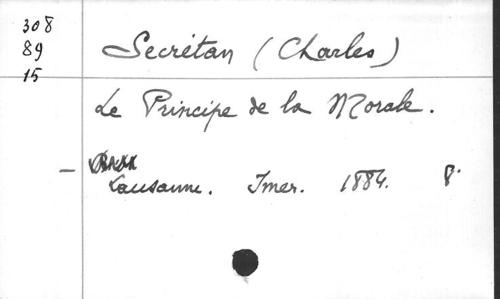 308
89
15
Secrétan (Charles)
Le Principe de la Morale.
— Lausanne. Imer. 1884. 8°